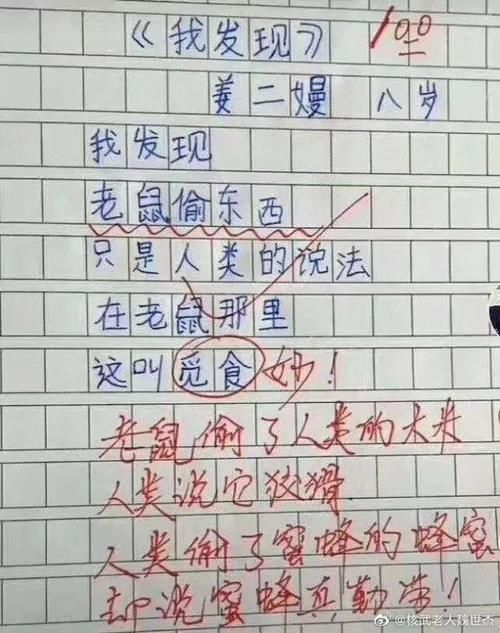 《我发现》
100
姜二嫚 八岁
我发现
老鼠偷东西
只是人类的说法
在老鼠那里
这叫觅食 妙！
老鼠偷了人类的大米
人类说它狡猾
人类偷了蜜蜂的蜂蜜
却说蜜蜂真勤劳！
@核武老人魏世杰